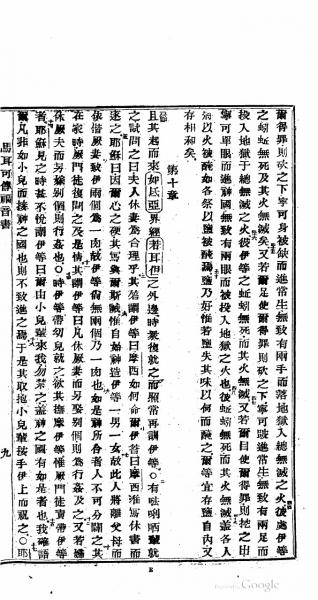 爾得罪則砍之下寧可身被缺而進常生無致有兩手而落地獄入總無滅之火後處伊等
之蚓蚯無死及其火無滅矣又若爾足使爾得罪則砍之下寧可跛進常生無致有兩足而
投入地獄于總無滅之火彼伊等之蚯蚓無死而其火無滅又若爾目使爾得罪則挖之出
寧可單眼而進神國無致有兩眼而被投入地獄之火也後蚯蚓無死而其火無滅蓋各人
須以火被醃如各祭以鹽被醃焉鹽乃好惟若鹽失其味以何而醃之爾等宜存鹽自內又
存相和矣
第十章
且其起而來如氐亞界經若耳但之外邊時衆復就之而照常再訓伊等○有唎哂輩就
之試問之曰夫人休妻爲合理乎其答謂伊等曰摩西如何命爾伊曰摩西准寫休書而
逐之耶穌曰因爾心之硬其寫與爾斯誡惟自始神造伊等一男一女故此人將離父母而
依偕厥妻致伊兩個爲一肉故伊等尙無兩個乃一肉也如是神所合者人不可分開之其
在家時厥門徒復問之及是情其謂伊等曰凡休厥妻而另娶別個則行姦及之又若婦
休厥夫而另嫁別個則行姦也○時伊等帶嬰兒就之欲其撫摩伊等惟厥門徒責帶伊等
者耶穌見之時甚不悅謂伊等曰由小兒輩來我勿禁之蓋神之國有如是者也我確語
爾凡非如小兒而接神之國也則不致進之焉于是其取抱小兒輩按手伊上而祝之○耶
馬耳可傳福音書
九
E
Google